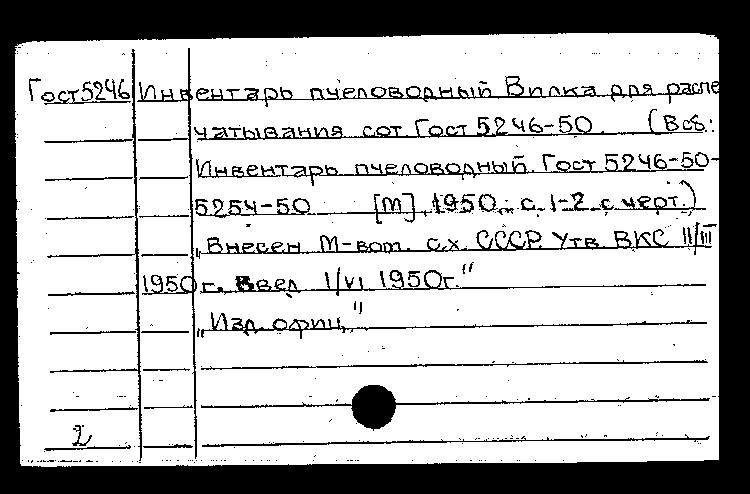 Гост 5246 Инвентарь пчеловодный Вилка для распе
чатывания сот Гост 5246-50. (В сб:
Инвентарь пчеловодный. Гост 5246-50-
5254-50 [М], 1950, с. 1-2 с черт.)
„Внесен М-вом. с.х. СССР. Утв ВКС II/III
1950 г. Введ 1/VI 1950г."
„Изд. офиц."
2